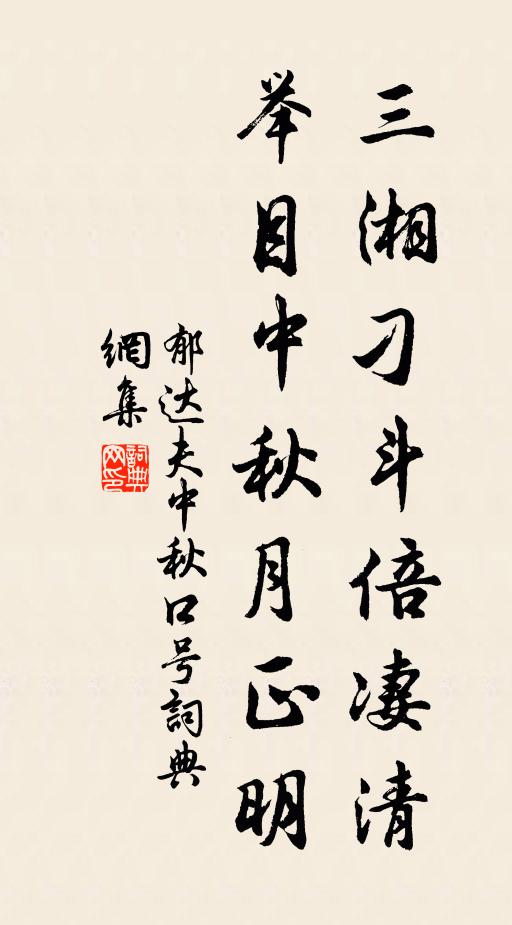 三湘刁斗倍凄清
举目中秋月正明
郁达夫中秋口号詞典
網集
詞典网印